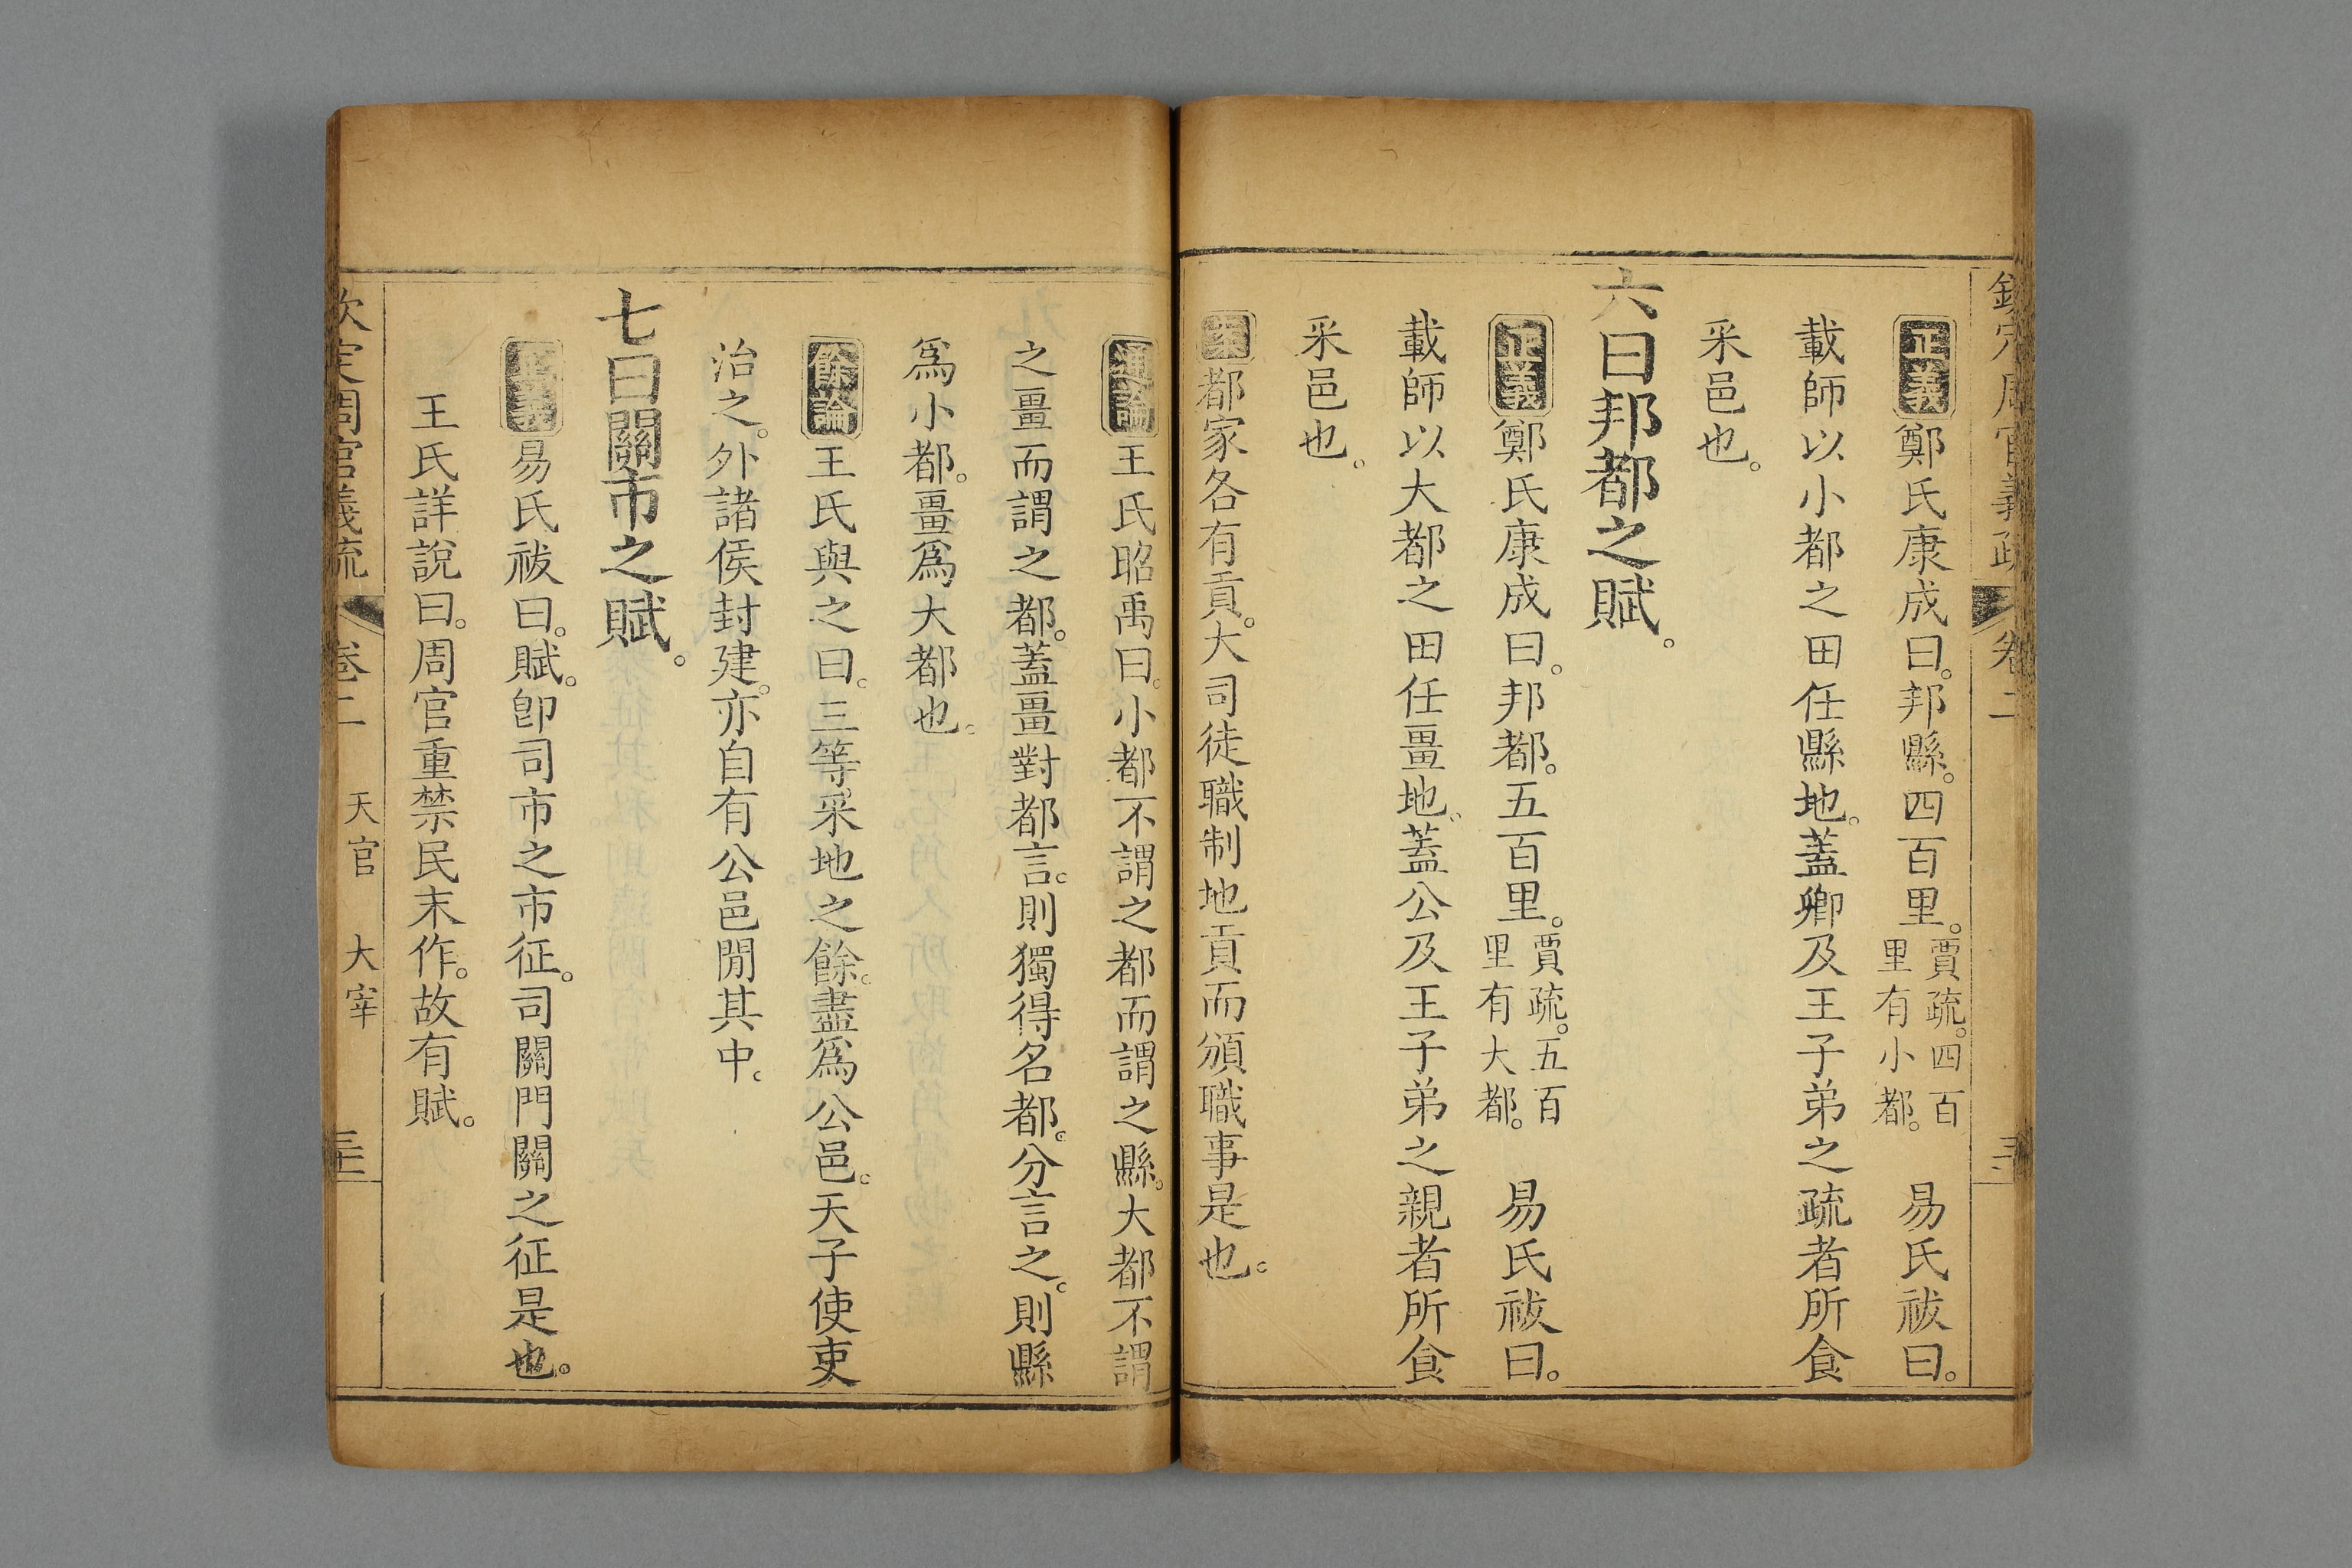 欽定周官義疏 卷二
正義鄭氏康成曰。邦縣。四百里。賈疏。四百里有小都。 易氏祓曰。
載師以小都之田任縣地。蓋卿及王子弟之疏者所食
采邑也。
六曰邦都之賦。
正義鄭氏康成曰。邦都。五百里。賈疏。五百里有大都。 易氏祓曰。
載師以大都之田任畺地。蓋公及王子弟之親者所食
采邑也。
案都家各有貢。大司徒職制地貢而頒職事是也。
通論王氏昭禹曰。小都不謂之都而謂之縣。大都不謂
之畺而謂之都。蓋畺對都言。則獨得名都。分言之。則縣
爲小都。畺爲大都也。
餘論王氏與之曰。三等采地之餘。盡爲公邑。天子使吏
治之。外諸侯封建。亦自有公邑閒其中。
七曰關市之賦。
正義易氏祓曰。賦。卽司市之市征。司關門關之征是也。
王氏詳說曰。周官重禁民末作。故有賦。
欽定周官義疏 卷二 天官 大宰